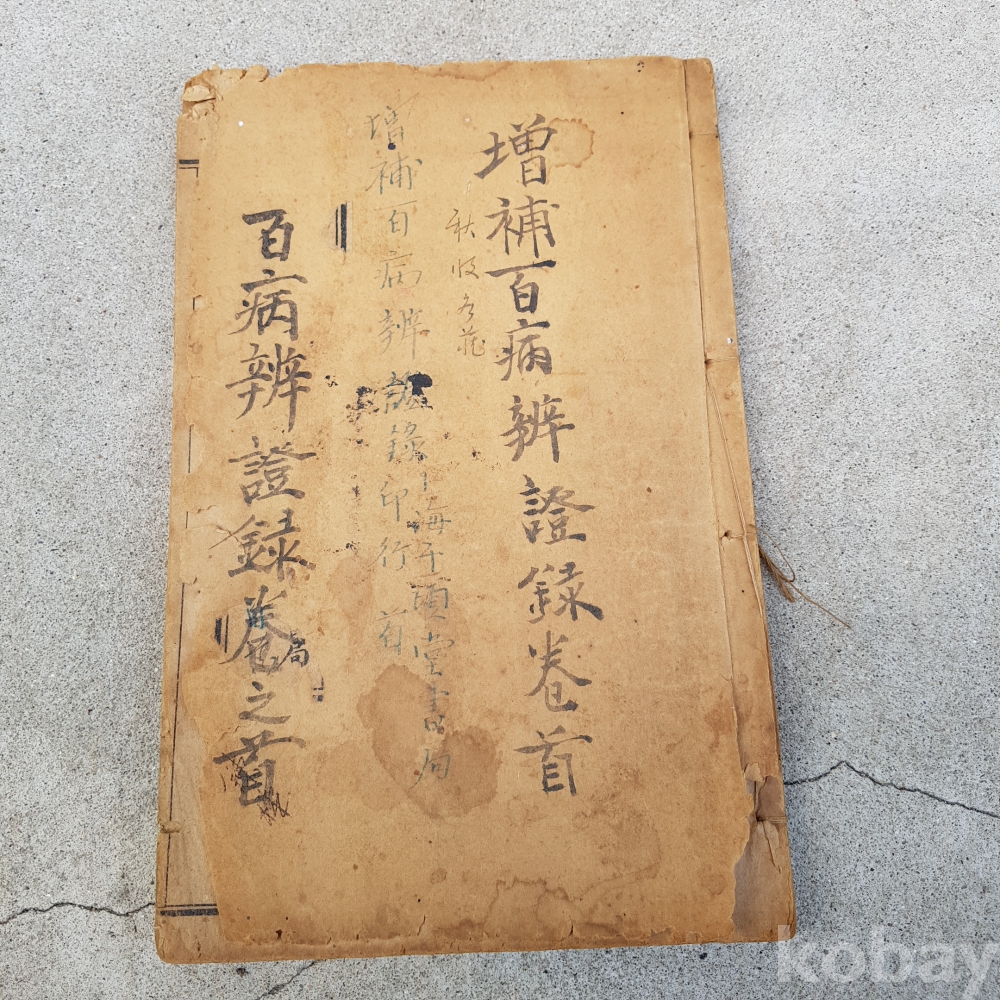 增補百病辨證録卷首
秋收冬藏
上海千頃堂書局
增補百病辨證錄印行首
百病辨證録卷之首
局
kobay